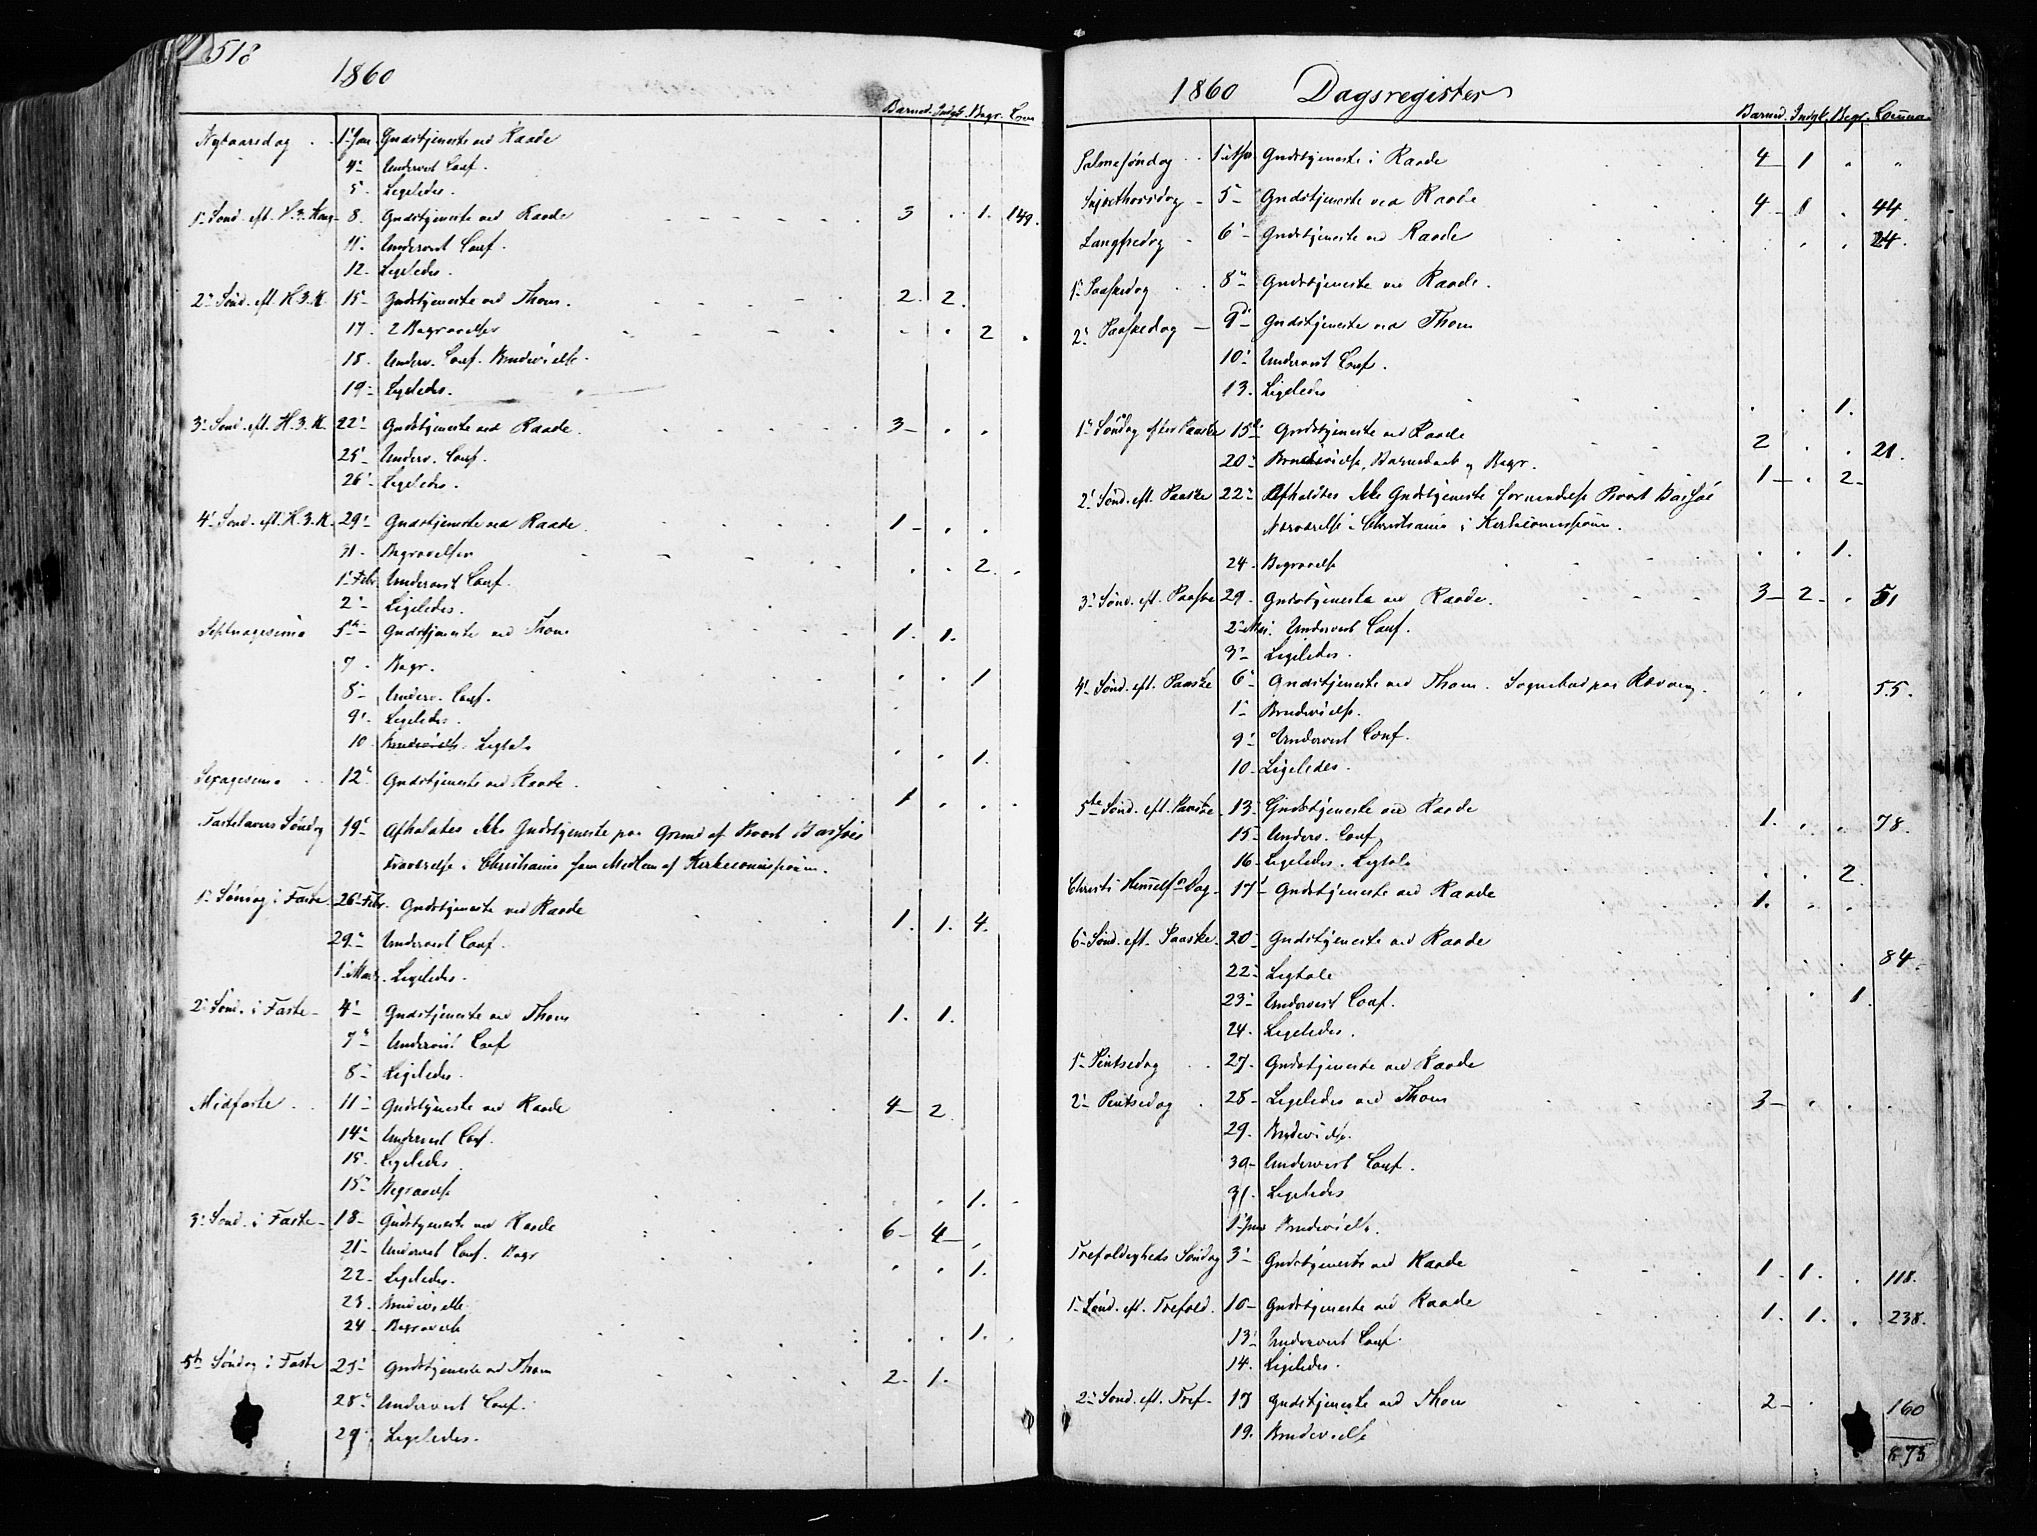 518
1860
Barned. Indgk. Begr. Com
Nytaarsdag 1' Jan Gudstjeneste ved Raade
4- Undervist Conf.
5. Ligeledes.
1' Sønd. eft. H. 3. Kong- 8. Gudstjeneste ved Raade 3 . 1. 149.
11. Underviist Conf.
12. Ligeledes.
2' Sønd. eft. H. 3. K. 15- Gudstjeneste ved Thom. 2. 2.
17. 2 Begravelser . . 2 .
18. Underv. Conf. Brudevielse.
19- Ligeledes.
3' Sønd. eft. H. 3. K. 22' Gudstjeneste ved Raade. 3- . .
25' Underv. Conf.
26' Ligeledes.
4' Sønd. eft. H. 3. K. 29' Gudstjeneste ved Raade. 1- . .
31- Begravelser . . 2. .
1' Febr Underviist Conf.
2'- Ligeledes.
Septuagesima 5te- Gudstjeneste ved Thom 1. 1.
7. Begr. . . 1
8- Underv. Conf.
9'- Ligeledes.
10 Brudevielse. Ligtale . . 1.
Sexagesima 12' Gudstjeneste ved Raade. 1 . . .
Fastelavns Søndag 19' Afholdtes ikke Gudstjeneste paa Grund af Provst Bassøes
Fraværelse i Christiania som Medlem af Kirkecommissionen.
1' Søndag i Faste 26' Febr. Gudstjeneste ved Raade 1. 1. 4.
29'- Underviist Conf.
1' Marts. Ligeledes.
2' Sønd. i Faste- 4'- Gudstjeneste ved Thom 1. 1.
7- Underviist Conf
8- Ligeledes.
Midfaste 11- Gudstjeneste ved Raade 4- 2
14' Underviist Conf.
15. Ligeledes
15' Begravelse . . 1. .
3' Sønd. i Faste- 18- Gudstjeneste ved Raade 6- 4- .
21'- Underviist Conf. Begr . . 1.
22- Ligeledes.
23. Brudevielse
24- Begravelse . . 1. .
5te Søndag i Faste 25' Gudstjeneste ved Thom 2. 1.
28' Underviist Conf.
29. Ligeledes.
1860 Dagsregister
Barned. Indgk. Begr. Commun.
Palmesøndag 1' Apr Gudstjeneste i Raade 4- 1 . "
Skjærthorsdag - 5- Gudstjeneste ved Raade 4- 1 . 44.
Langfredag - 6'- Gudstjeneste ved Raade . . . 24.
1' Paaskedag 8' Gudstjeneste ved Raade.
2' Paaskedag - 9de- Gudstjeneste ved Thom
10' Underviist Conf.
13. Ligeledes . . 1.
1' Søndag efter Paaske 15de Gudstjeneste ved Raade 2 . . 21.
20- Brudevielse, Barnedaab og Begr. 1- . 2-
2' Sønd. eft. Paaske 22' Afholdtes ikke Gudstjeneste formedelst Provst Bassøes
Nærværelse i Christiania i Kirkecommissionen.
24. Begravelse . . 1.
3' Sønd. eft. Paaske 29. Gudstjeneste ved Raade. 3- 2- . 51
2' Mai. Underviist Conf.
3'- Ligeledes.
4' Sønd. eft. Paaske 6'- Gudstjeneste ved Thom. . . 55.
1'- Brudevielse.
9'- Underviist Conf.
10- Ligeledes.
5te Sønd. eft. Paaske 13. Gudstjeneste ved Raade 1. . . 78.
15- Underv. Conf
16- Ligeledes. Ligtale . . 2.
Christi Himmelf. Dag. 17' Gudstjeneste ved Raade 1. . .
6- Sønd. eft. Paaske. 20- Gudstjeneste ved Raade . . . 84-
22- Ligtale . . 1.
23- Underviist Conf.
24. Ligeledes.
1' Pintsedag 27. Gudstjeneste ved Raade
2- Pintsedag 28- Ligeledes ved Thom 3- . . .
29. Brudevielse.
30- Underviist Conf.
31. Ligeledes
1' Juni Brudevielse.
Trefoldigheds Søndag 3' Gudstjeneste ved Raade 1. 1. . 118.
1' Sønd. eft. Trefold. 10- Gudstjeneste ved Raade 1. 1. . 238.
13' Underviist Conf.
14. Ligeledes.
2' Sønd. eft. Tref- 17 Gudstjeneste ved Thom 2- . 160
19. Brudevielse
875